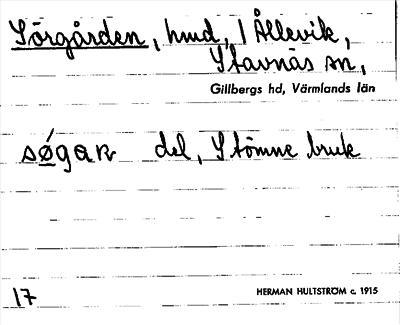 Sörgården, hmd, i Ållevik,
Stavnäs sn,
Gillbergs hd, Värmlands län
søgan del, Stömne bruk
17
HERMAN HULTSTRÖM c. 1915